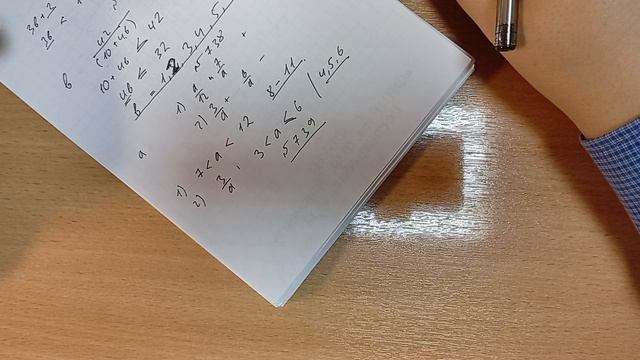 3b + 2
3b < 1
42
(10 + 4b)
b
10 + 4b ≤ 42
4b ≤ 32
b = 1, 2, 3, 4, 5
5738
1) a/12 + 7/a
2) 3/a + 6/a -
8 - 11
a
1) 7 < a < 12
2) 3/a, 3 < a ≤ 6 | 4, 5, 6
5739